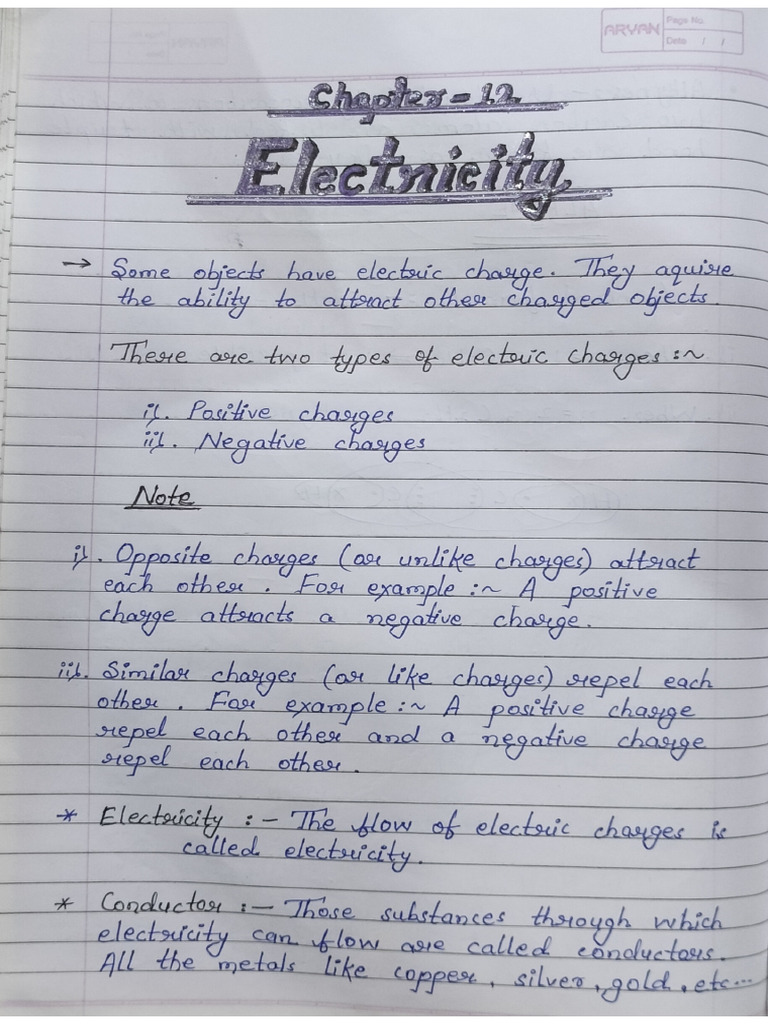 ARYAN
Page No.
Date / /
Chapter - 12
Electricity
→ Some objects have electric charge. They aquire
the ability to attract other charged objects.
There are two types of electric charges :~
i). Positive charges
ii). Negative charges
Note
i). Opposite charges (or unlike charges) attract
each other. For example :~ A positive
charge attracts a negative charge.
ii). Similar charges (or like charges) repel each
other. For example :~ A positive charge
repel each other and a negative charge
repel each other.
* Electricity :- The flow of electric charges is
called electricity.
* Conductor :- Those substances through which
electricity can flow are called conductors.
All the metals like copper, silver, gold, etc...